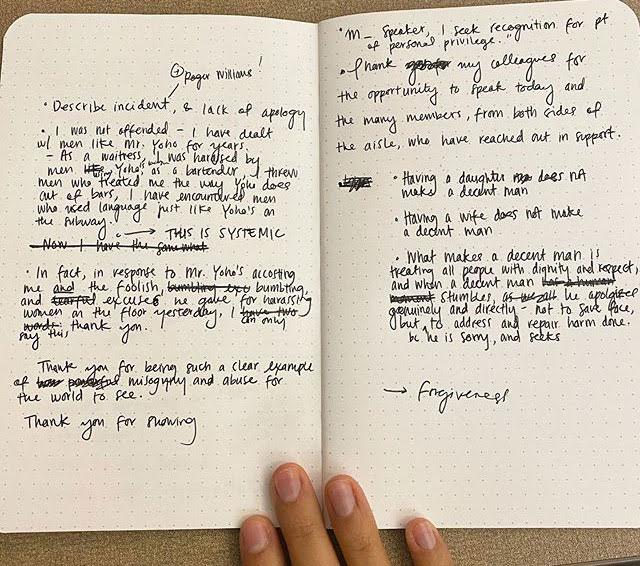 + Roger Williams!
• Describe incident, & lack of apology
• I was not offended – I have dealt
w/ men like Mr. Yoho for years.
– As a waitress, I was harassed by
men like Yoho's, as a bartender, I threw
men who treated me the way Yoho does
out of bars, I have encountered men
who used language just like Yoho's on
the subway. → THIS IS SYSTEMIC
Now I have the same what
• In fact, in response to Mr. Yoho's accosting
me and the foolish, bumbling exc bumbling,
and tearful excuses he gave for harassing
women on the floor yesterday, I have two can only
say this, words: thank you.
Thank you for being such a clear example
of how powerful misogyny and abuse for
the world to see.
Thank you for showing
"M_ Speaker, I seek recognition for pt
of personal privilege."
• Thank my colleagues for
the opportunity to speak today and
the many members, from both sides of
the aisle, who have reached out in support.
• Having a daughter does not
make a decent man
• Having a wife does not make
a decent man
• What makes a decent man is
treating all people with dignity and respect,
and when a decent man has a human
moment stumbles, as we all he apologizes
genuinely and directly – not to save face,
but to address and repair harm done.
bc he is sorry, and seeks
→ forgiveness